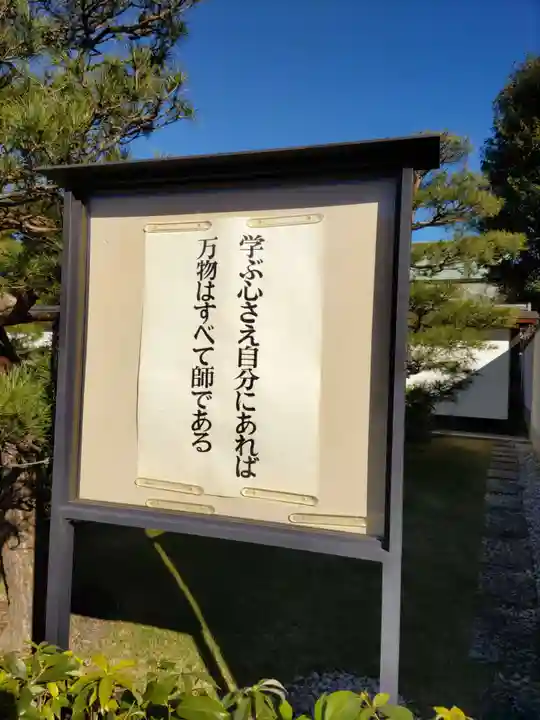 学ぶ心さえ自分にあれば
万物はすべて師である